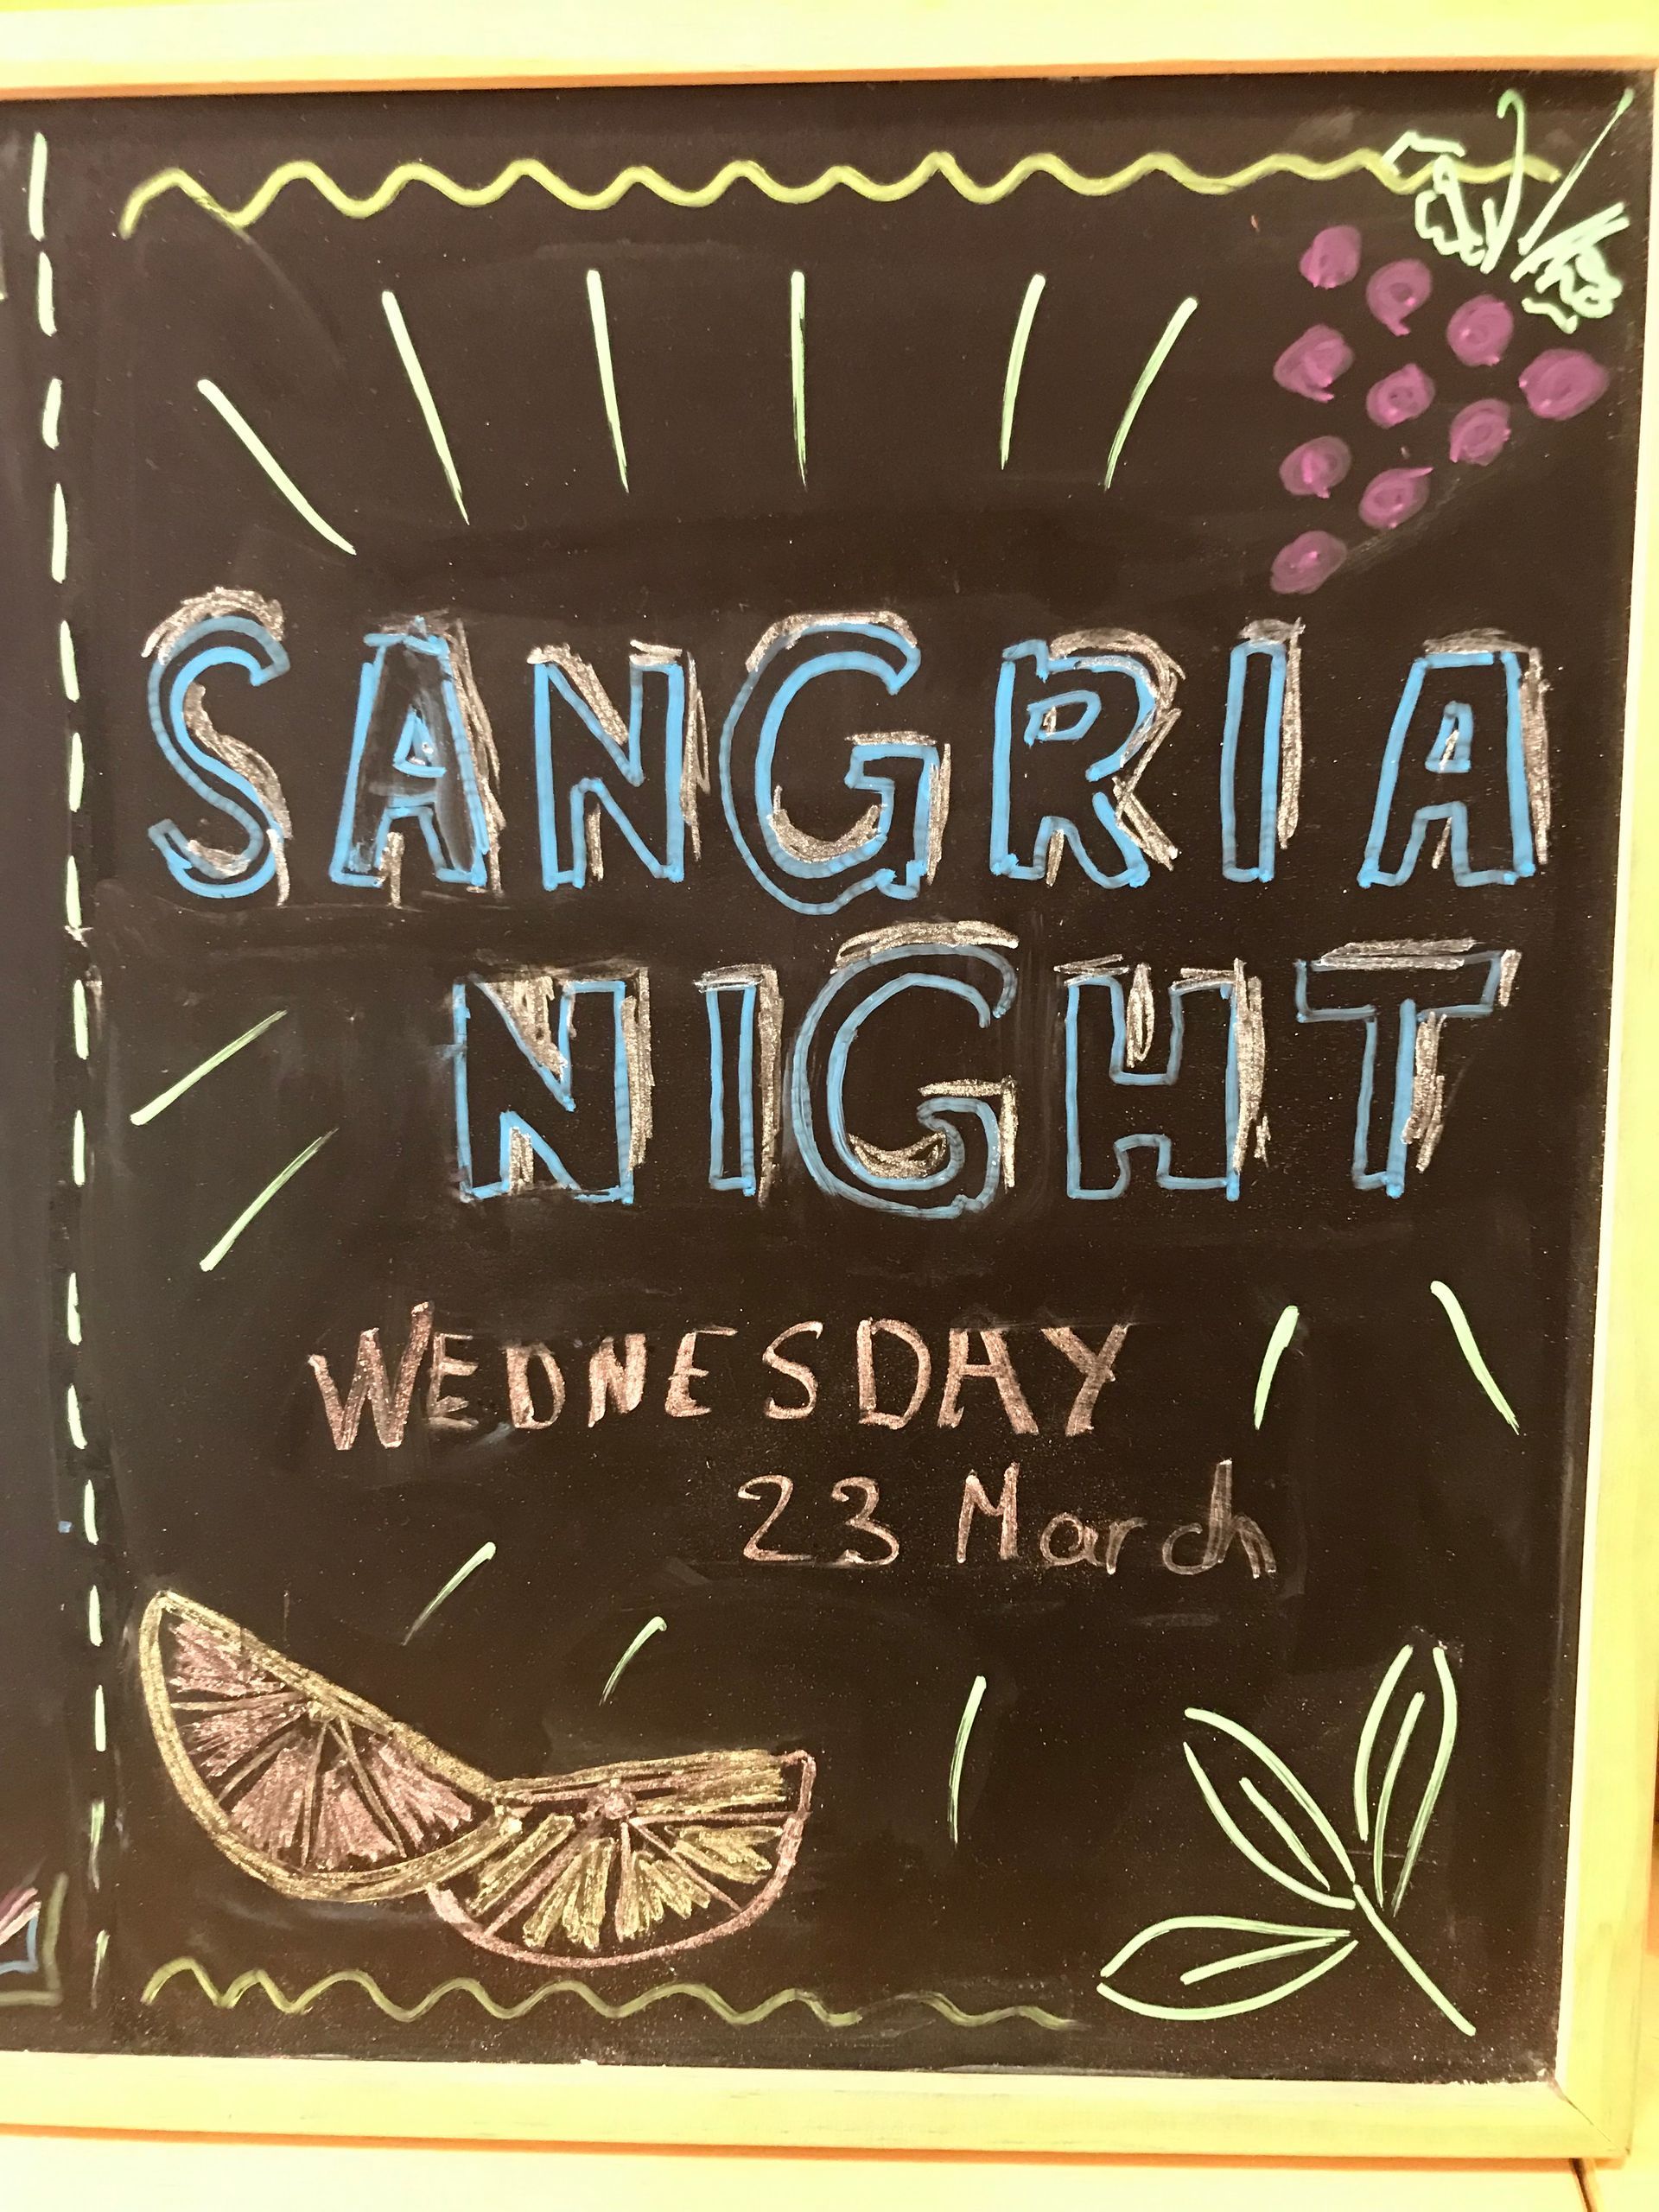 SANGRIA
NIGHT
WEDNESDAY
23 March